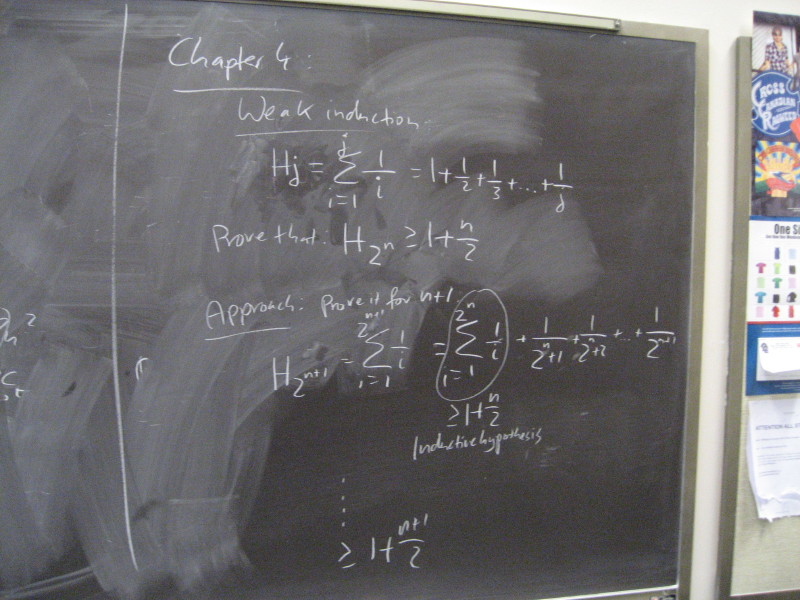 Chapter 4:
Weak induction:
Hj = ∑_{i=1}^{j} 1/i = 1 + 1/2 + 1/3 + ... + 1/j
Prove that: H_{2^n} ≥ 1 + n/2
Approach: Prove it for n+1:
H_{2^{n+1}} = ∑_{i=1}^{2^{n+1}} 1/i = ∑_{i=1}^{2^n} 1/i + 1/(2^n+1) + 1/(2^n+2) + ... + 1/2^{n+1}
≥ 1 + n/2
Inductive hypothesis
≥ 1 + (n+1)/2
CROSS
CANADIAN
RAGWEED
One Si
ATTENTION ALL